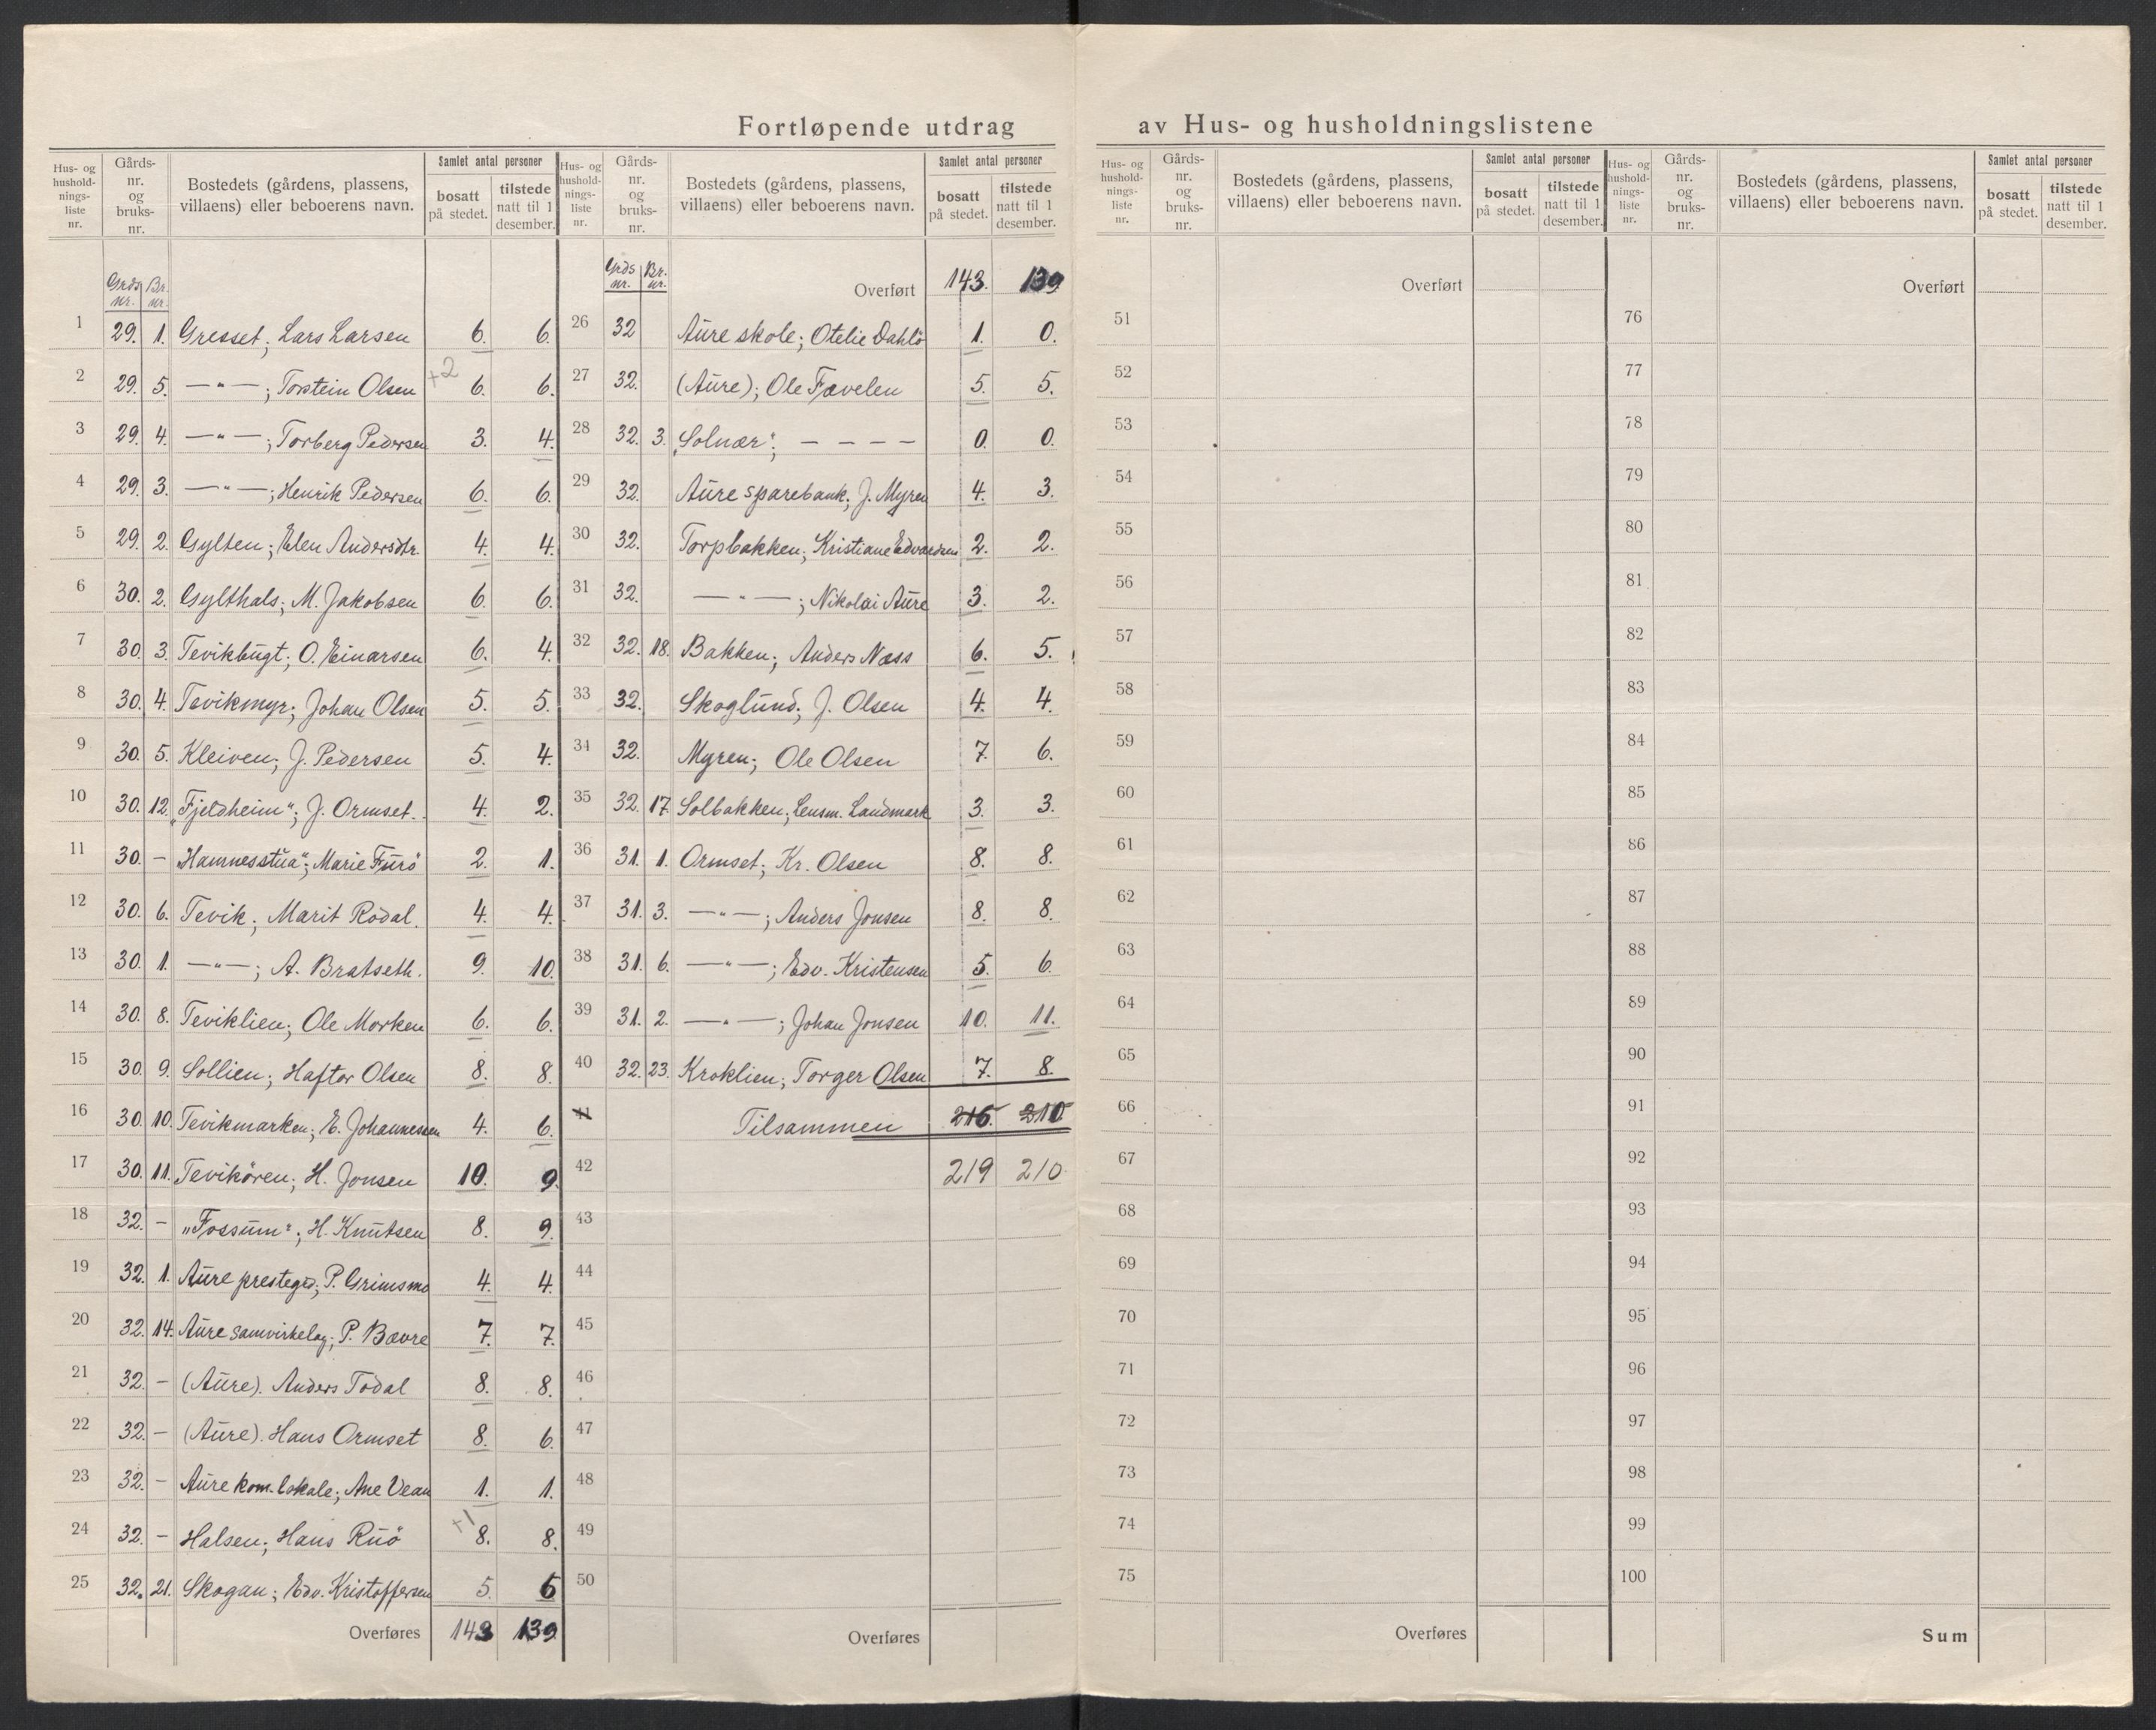 Fortløpende utdrag av Hus- og husholdningslistene
Hus- og husholdnings-liste nr. | Gårds-nr. og bruks-nr. | Bostedets (gårdens, plassens, villaens) eller beboerens navn. | Samlet antal personer | bosatt på stedet. | tilstede natt til 1 desember.
Grds nr. | Br. nr.
1 29. 1. Gresset; Lars Larsen 6. 6.
2 29. 5. —"—; Torstein Olsen +2 6. 6.
3 29. 4. —"—; Torberg Pedersen 3. 4.
4 29. 3. —"—; Henrik Pedersen 6. 6.
5 29. 2. Gylten; Elen Andersdtr. 4. 4.
6 30. 2. Gylthals; M. Jakobsen 6. 6.
7 30. 3. Tevikbugt; O. Einarsen 6. 4.
8 30. 4. Tevikmyr; Johan Olsen 5. 5.
9 30. 5. Kleiven; J. Pedersen 5. 4.
10 30. 12. „Fjeldheim"; J. Ormset. 4. 2.
11 30. – „Hamnesstua"; Marie Furö 2. 1.
12 30. 6. Tevik; Marit Rodal. 4. 4.
13 30. 1. —"—; A. Bratseth. 9. 10.
14 30. 8. Teviklien; Ole Morken 6. 6.
15 30. 9. Sollien; Haftor Olsen 8. 8.
16 30. 10. Tevikmarken; E. Johannessen 4. 6.
17 30. 11. Tevikören; H. Jonsen 10. 9.
18 32. – „Fossum"; H. Knutsen 8. 9.
19 32. 1. Aure prestegd; P. Grimsmo 4. 4.
20 32. 14. Aure samvirkelag; P. Bævre 7. 7.
21 32. – (Aure). Anders Todal 8. 8.
22 32. – (Aure). Hans Ormset 8. 6.
23 32. – Aure kom. lokale; Ane Vean 1. 1.
24 32. – Halsen; Hans Ruö +1 8. 8.
25 32. 21. Skogan; Edv. Kristoffersen 5. 5
Overføres 143 139
Hus- og husholdnings-liste nr. | Gårds-nr. og bruks-nr. | Bostedets (gårdens, plassens, villaens) eller beboerens navn. | Samlet antal personer | bosatt på stedet. | tilstede natt til 1 desember.
Grds nr. | Br. nr. Overført 143. 139
26 32 Aure skole; Otelie Dahlö 1. 0.
27 32. (Aure); Ole Fævelen 5. 5.
28 32. 3. „Solnær"; – – – – 0. 0.
29 32. Aure sparebank; J. Myren 4. 3.
30 32. Torpbakken; Kristiane Edvardsen 2. 2.
31 32. —"—; Nikolai Aure 3. 2.
32 32. 18. Bakken; Anders Næss 6. 5.
33 32. Skoglund; J. Olsen 4. 4.
34 32. Myren; Ole Olsen 7. 6.
35 32. 17. Solbakken; Lensm. Landmark 3. 3.
36 31. 1. Ormset; Kr. Olsen 8. 8.
37 31. 3. —"—; Anders Jonsen 8. 8.
38 31. 6. —"—; Edv. Kristensen 5. 6.
39 31. 2. —"—; Johan Jonsen 10. 11.
40 32. 23. Kroklien; Torger Olsen 7. 8.
41 Tilsammen 216. 210
42 219 210.
43
44
45
46
47
48
49
50
Overføres
Hus- og husholdnings-liste nr. | Gårds-nr. og bruks-nr. | Bostedets (gårdens, plassens, villaens) eller beboerens navn. | Samlet antal personer | bosatt på stedet. | tilstede natt til 1 desember.
Overført
51
52
53
54
55
56
57
58
59
60
61
62
63
64
65
66
67
68
69
70
71
72
73
74
75
Overføres
Hus- og husholdnings-liste nr. | Gårds-nr. og bruks-nr. | Bostedets (gårdens, plassens, villaens) eller beboerens navn. | Samlet antal personer | bosatt på stedet. | tilstede natt til 1 desember.
Overført
76
77
78
79
80
81
82
83
84
85
86
87
88
89
90
91
92
93
94
95
96
97
98
99
100
Sum